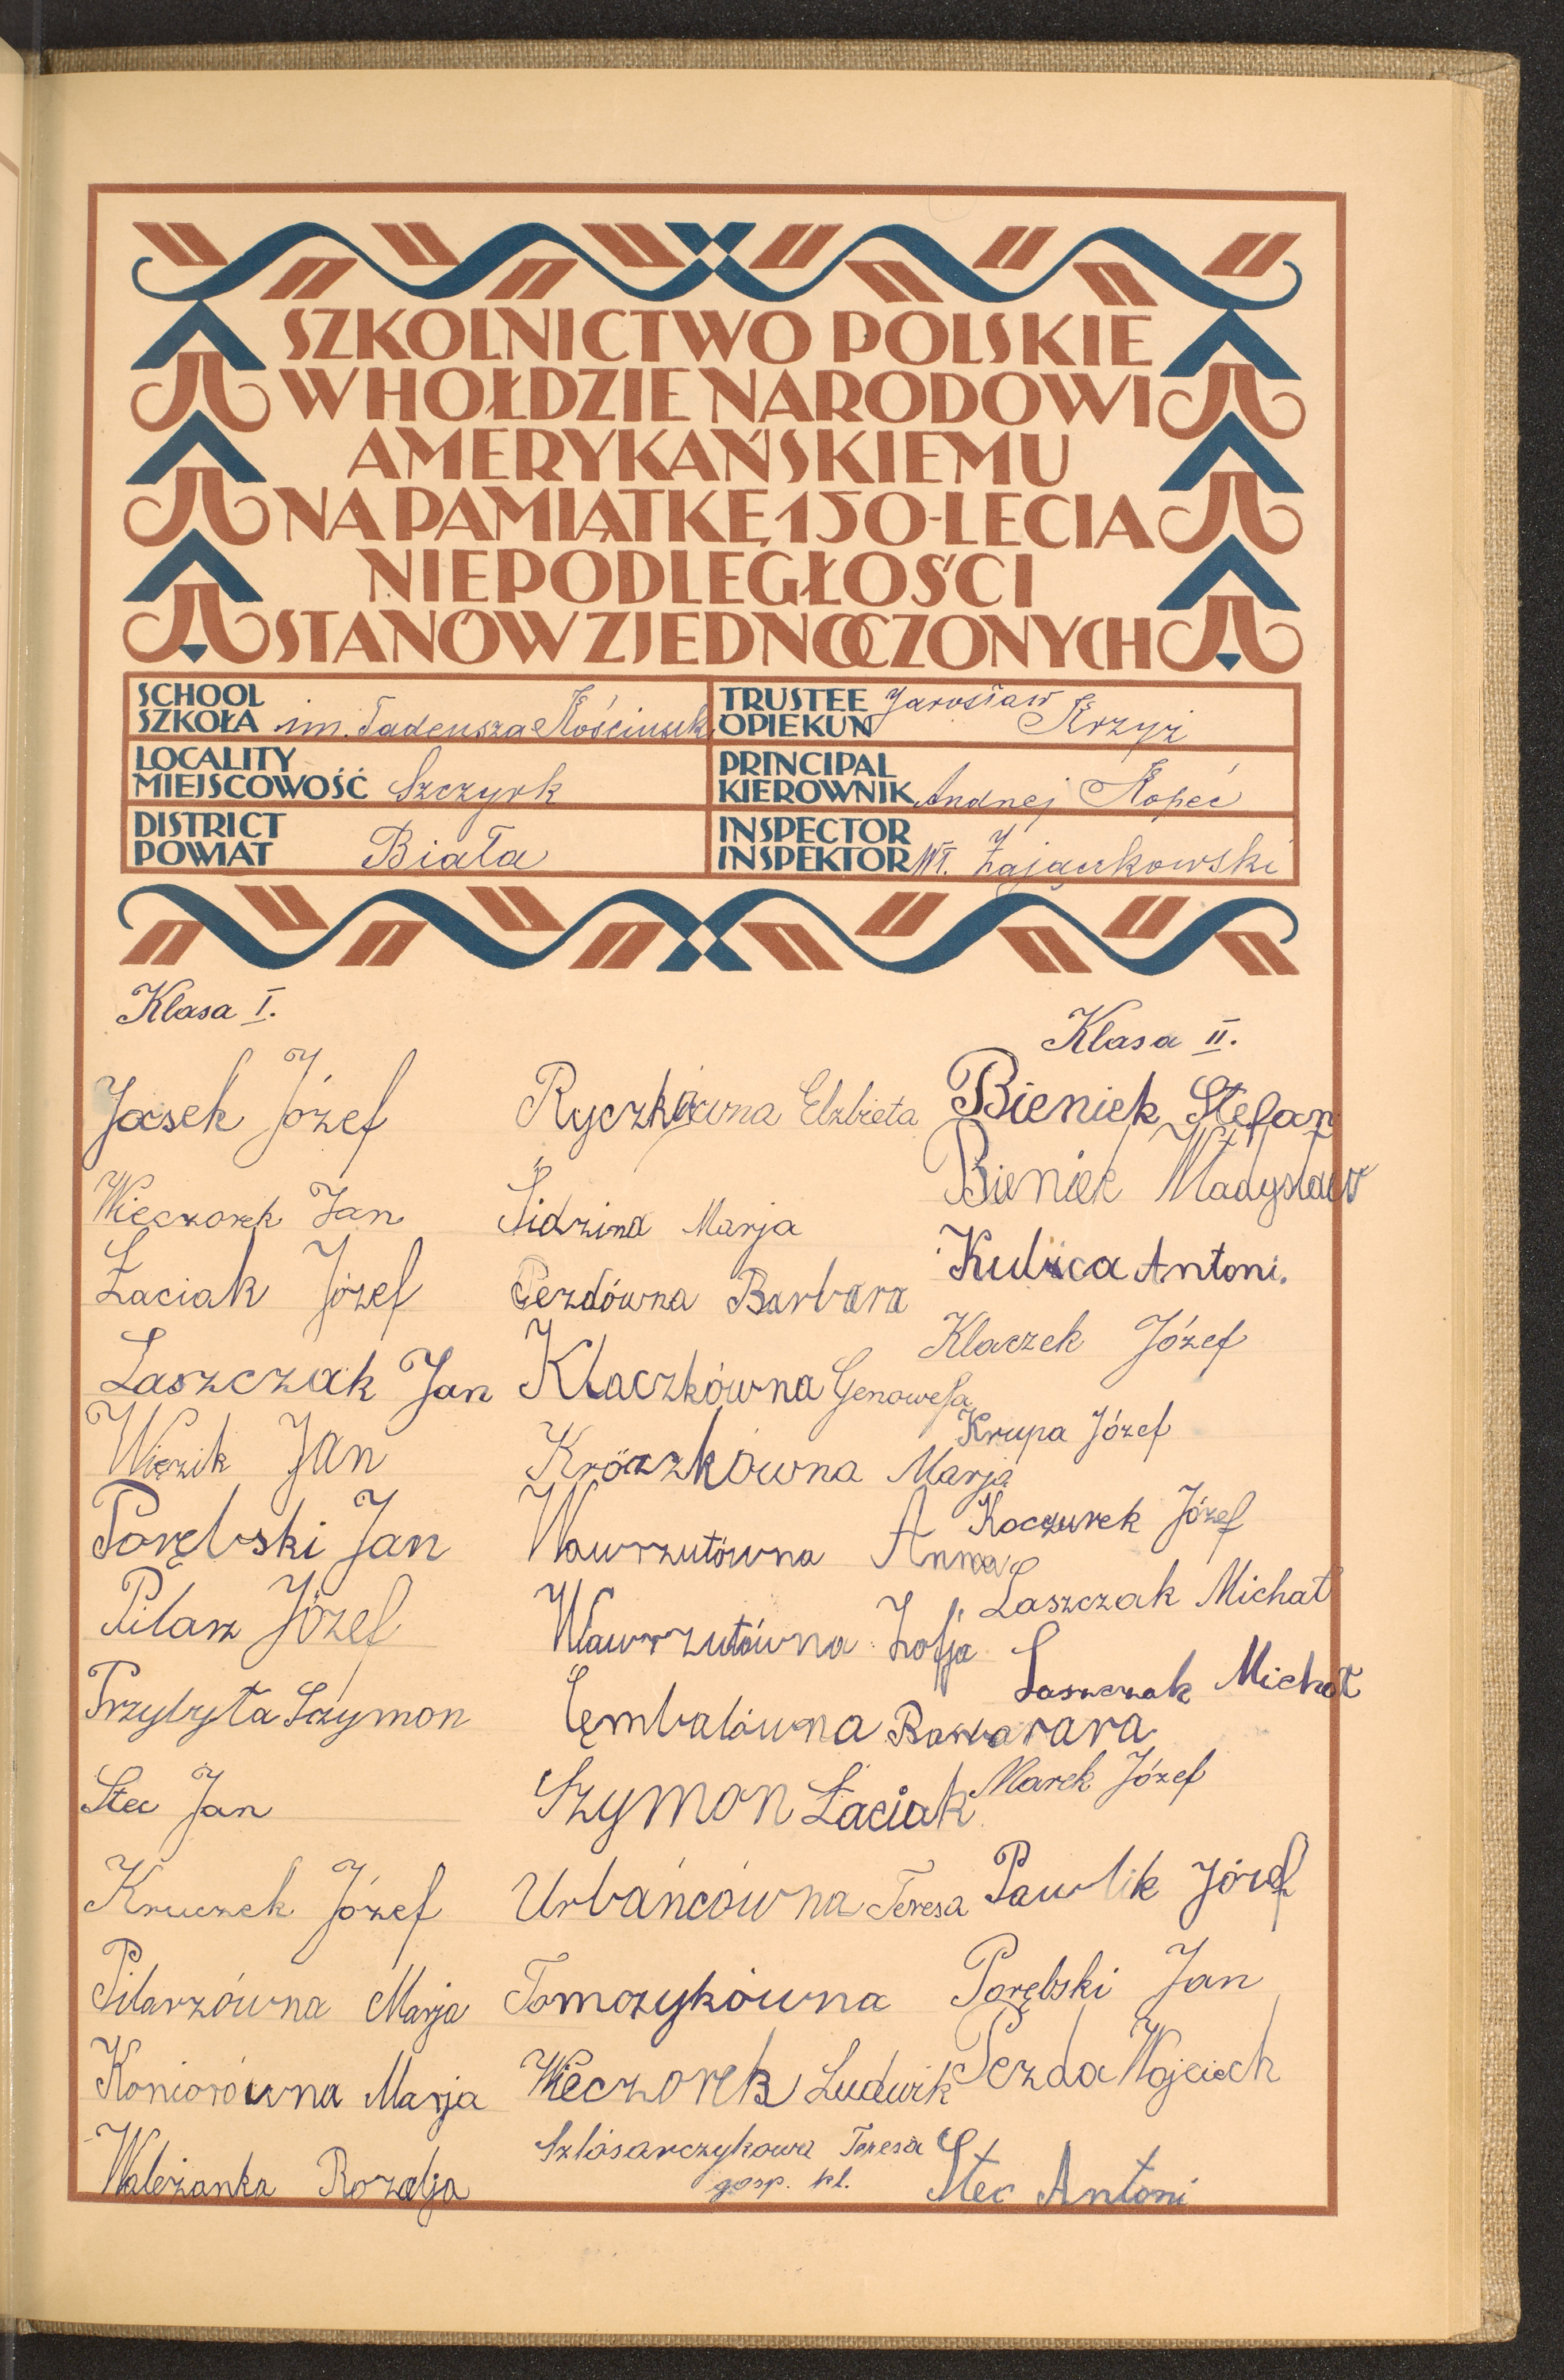 SZKOLNICTWO POLSKIE
W HOŁDZIE NARODOWI
AMERYKAŃSKIEMU
NA PAMIĄTKĘ 150-LECIA
NIEPODLEGŁOŚCI
STANÓW ZJEDNOCZONYCH
SCHOOL
SZKOŁA im. Tadeusza Kościuszk
TRUSTEE
OPIEKUN Jarosław Krzyż
LOCALITY
MIEJSCOWOŚĆ Szczyrk
PRINCIPAL
KIEROWNIK Andrzej Kopeć
DISTRICT
POWIAT Biała
INSPECTOR
INSPEKTOR Wł. Zajączkowski
Klasa I.
Jasek Józef
Wieczorek Jan
Łaciak Józef
Laszczak Jan
Więzik Jan
Porębski Jan
Pilarz Józef
Przybyła Szymon
Stec Jan
Kruczek Józef
Pilarzówna Marja
Koniorówna Marja
Wależanka Rozalja
Ryczkówna Elzbieta
Sidzina Marja
Pezdówna Barbara
Klaczkówna Genowefa
Marja
Wawrzutówna Anna
Wawrzutówna Zofja
Cembalówna
Szymon Łaciak
Urbańcówna Teresa
Tomczykówna
Wieczorek Ludwik
Szlósarczykowa Teresa
gosp. kl.
Klasa II.
Bieniek Stefan
Bieniek Władysław
Antoni.
Klaczek Józef
Krupa Józef
Koczurek Józef
Laszczak Michał
Laszczak Michał
Marek Józef
Pawlik Józef
Porębski Jan
Pezda Wojciech
Stec Antoni